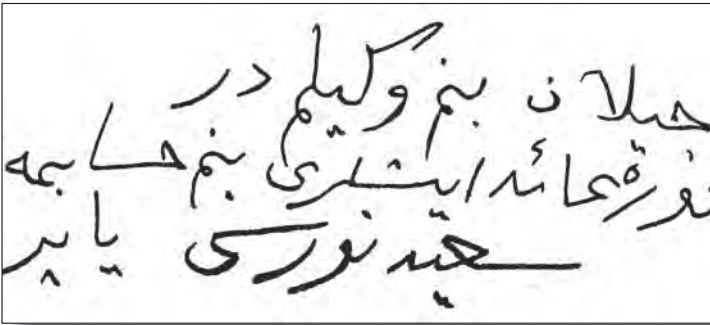 جيلان بنم وكيلم در
نوره عائد ايشلرى بنم حسابمه
سعيد نورسى ياپر